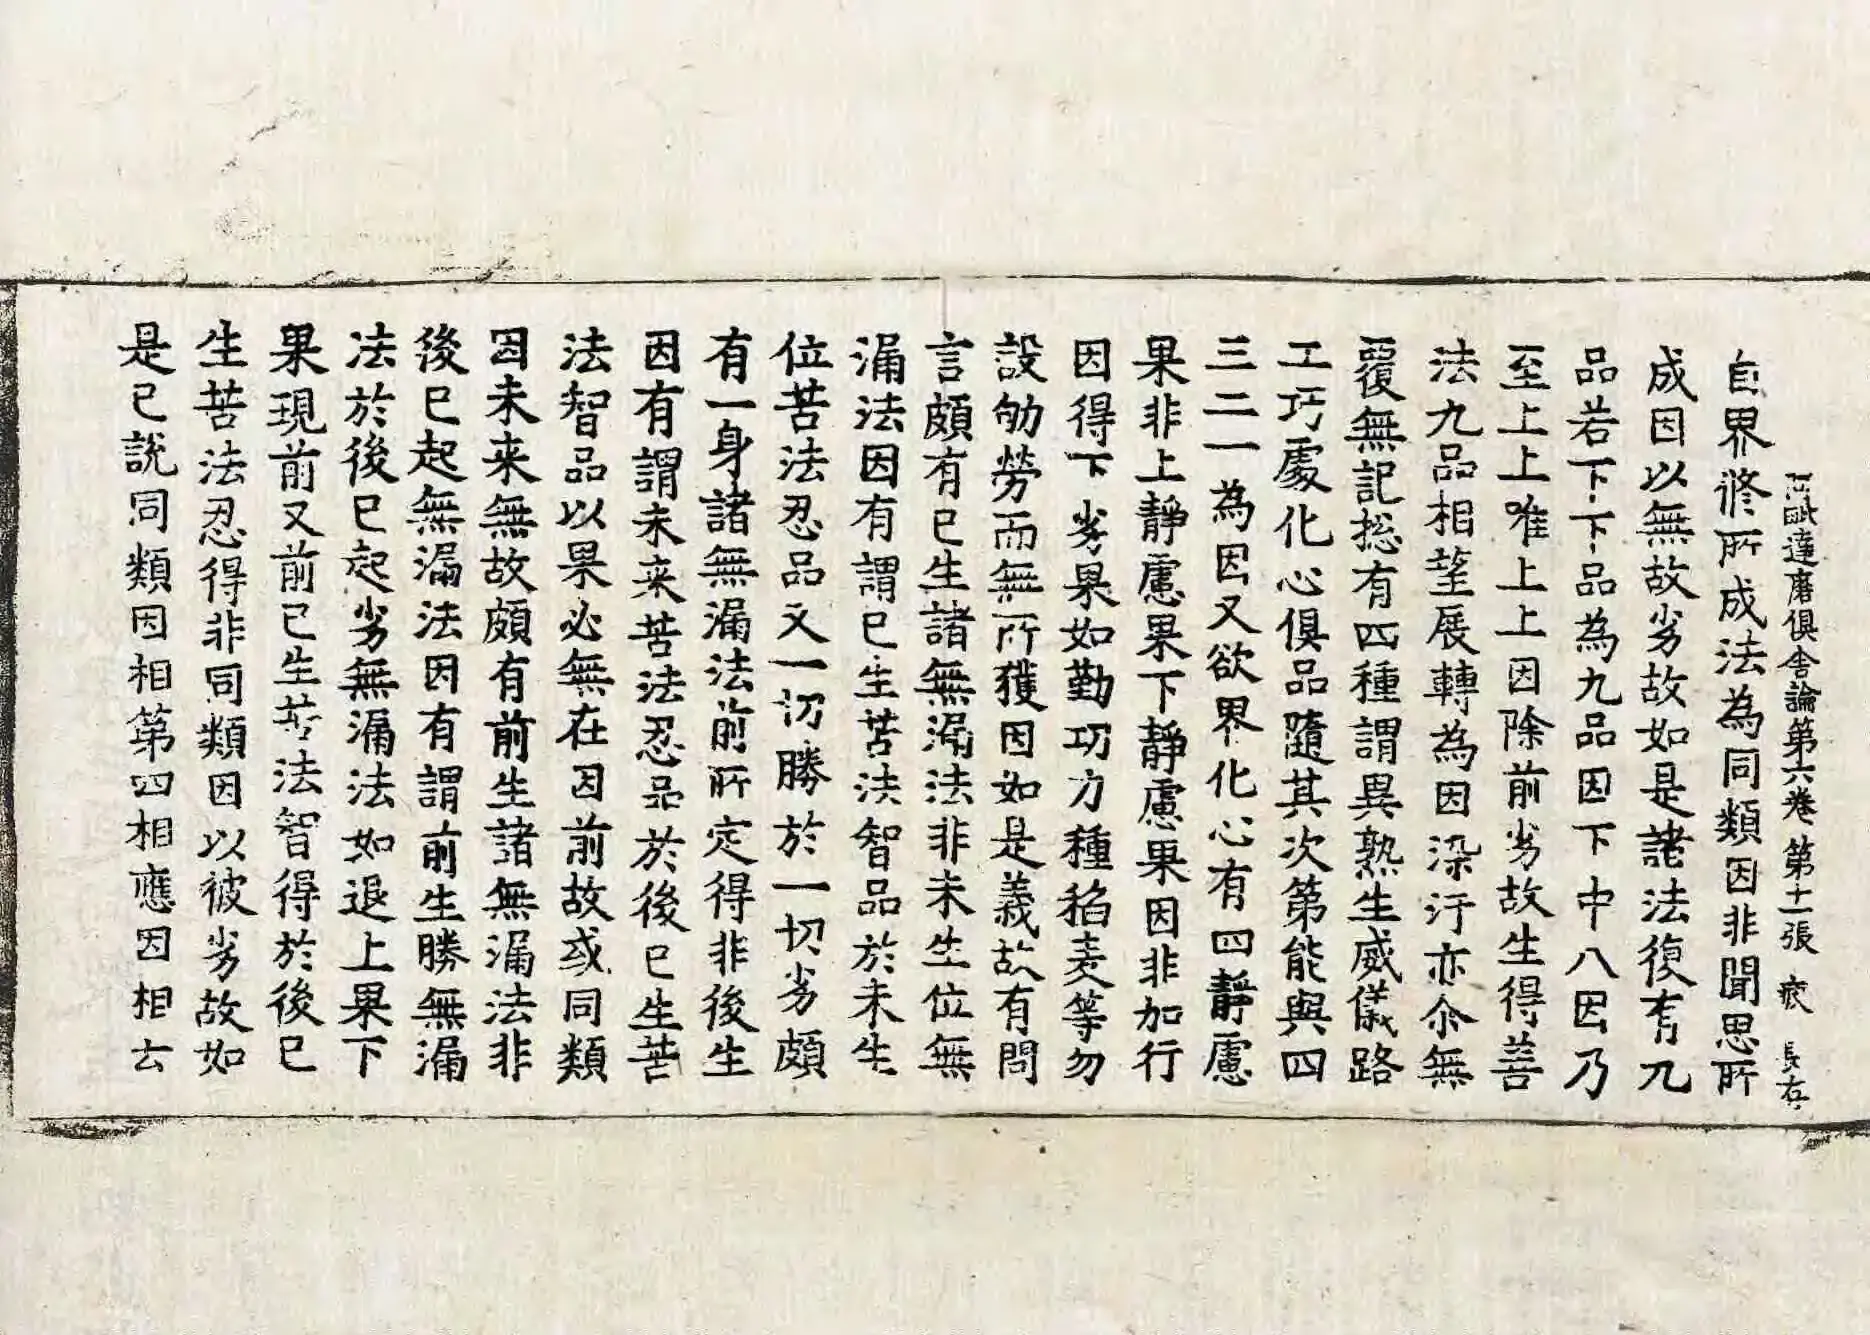 阿毗達磨俱舍論第六卷 第十一張 疲 長右
自界修所成法為同類因非聞思所
成因以無故劣故如是諸法復有九
品若下下品為九品因下中八因乃
至上上唯上上因除前劣故生得善
法九品相望展轉為因染汙亦尒無
覆無記揔有四種謂異熟生威儀路
工巧處化心俱品隨其次第能與四
三二一為因又欲界化心有四靜慮
果非上靜慮果下靜慮果因非加行
因得下劣果如勤功力種稻麦等勿
設劬勞而無所獲因如是義故有問
言頗有已生諸無漏法非未生位無
漏法因有謂已生苦法智品於未生
位苦法忍品又一切勝於一切劣頗
有一身諸無漏法前所定得非後生
因有謂未来苦法忍品於後已生苦
法智品以果必無在因前故或同類
因未来無故頗有前生諸無漏法非
後已起無漏法因有謂前生勝無漏
法於後已起劣無漏法如退上果下
果現前又前已生苦法智得於後已
生苦法忍得非同類因以彼劣故如
是已說同類因相第四相應因相云